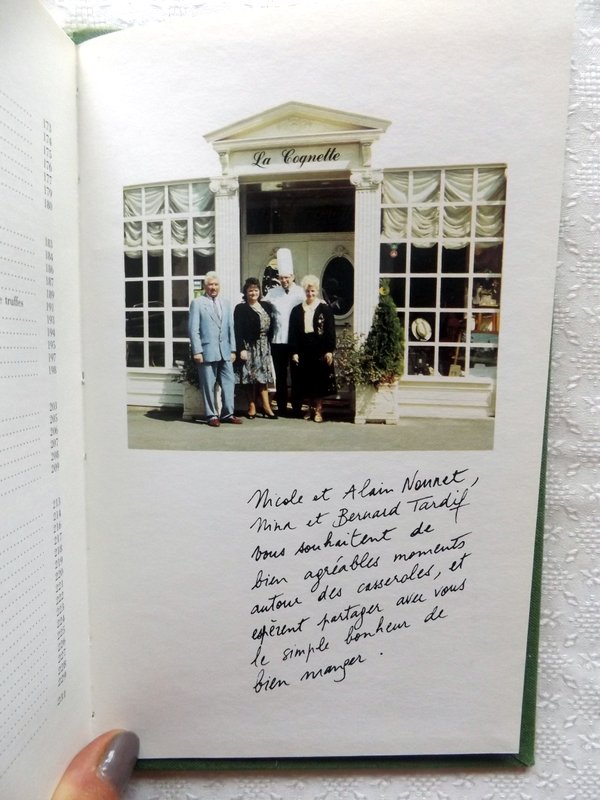 173
174
175
176
177
179
180
183
184
186
187
e truffes 189
191
193
194
195
197
198
203
205
206
207
208
209
213
214
216
217
218
219
220
221
La Cognette
Nicole et Alain Nonnet,
Nina et Bernard Tardif
vous souhaitent de
bien agréables moments
autour des casseroles, et
espèrent partager avec vous
le simple bonheur de
bien manger.